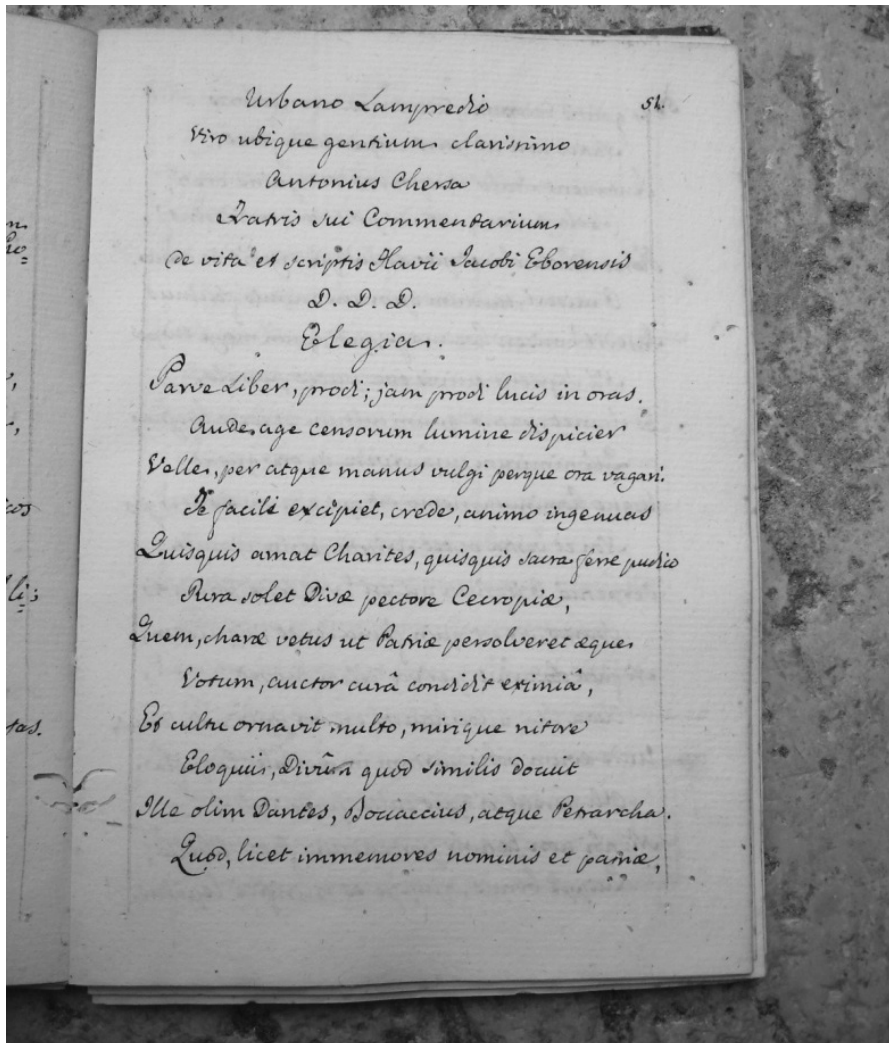 Urbano Lampredio
51.
Viro ubique gentium clarissimo
Antonius Chersa
Fratris sui Commentarium
de vita et scriptis Flavii Jacobi Eborensis
D. D. D.
Elegia.
Parve Liber, prodi; jam prodi lucis in oras.
Aude age censorum lumine dispicier
Velle, per atque manus vulgi perque ora vagari.
Te facili excipiet, crede, animo ingenuas
Quisquis amat Charites, quisquis sacra ferre pudico
Rura solet Divæ pectore Cecropiæ,
Quem, charæ vetus ut Patriæ persolveret æque
Votum, auctor curâ condidit eximiâ,
Et cultu ornavit multo, mirique nitore
Eloquii, Divûm quod similis docuit
Ille olim Dantes, Bocaccius, atque Petrarcha.
Quod, licet immemores nominis et patriæ,
cos
li;
tas.